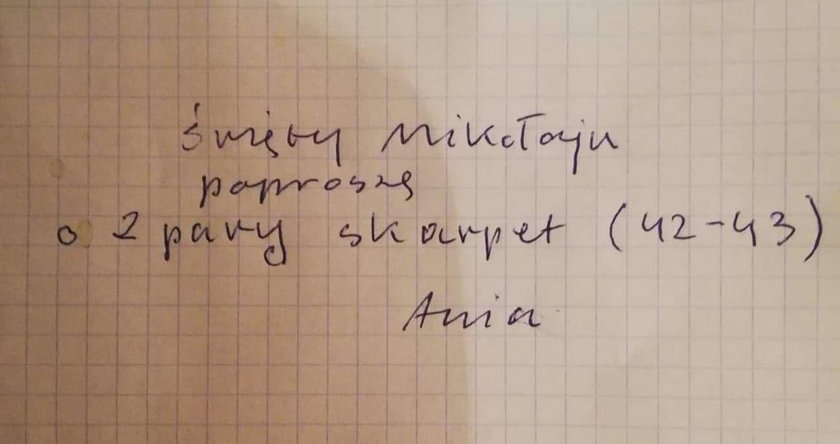 święty Mikołaju
poproszę
o 2 pary skarpet (42-43)
Ania